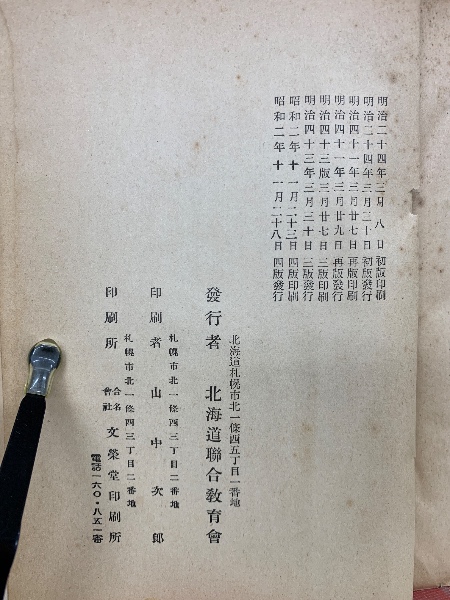 明治二十四年三月八日初版印刷
明治二十四年三月二十日初版發行
明治四十一年三月廿七日再版印刷
明治四十一年三月廿九日再版發行
明治四十三版三月廿七日三版印刷
明治四十三年三月三十日三版發行
昭和二年十一月二十三日四版印刷
昭和二年十一月二十八日四版發行
北海道札幌市北一條西五丁目一番地
發行者 北海道聯合敎育會
札幌市北一條西三丁目二番地
印刷者 山中次郎
札幌市北一條西三丁目二番地
印刷所 合名會社 文榮堂印刷所
電話一六〇・八五一番